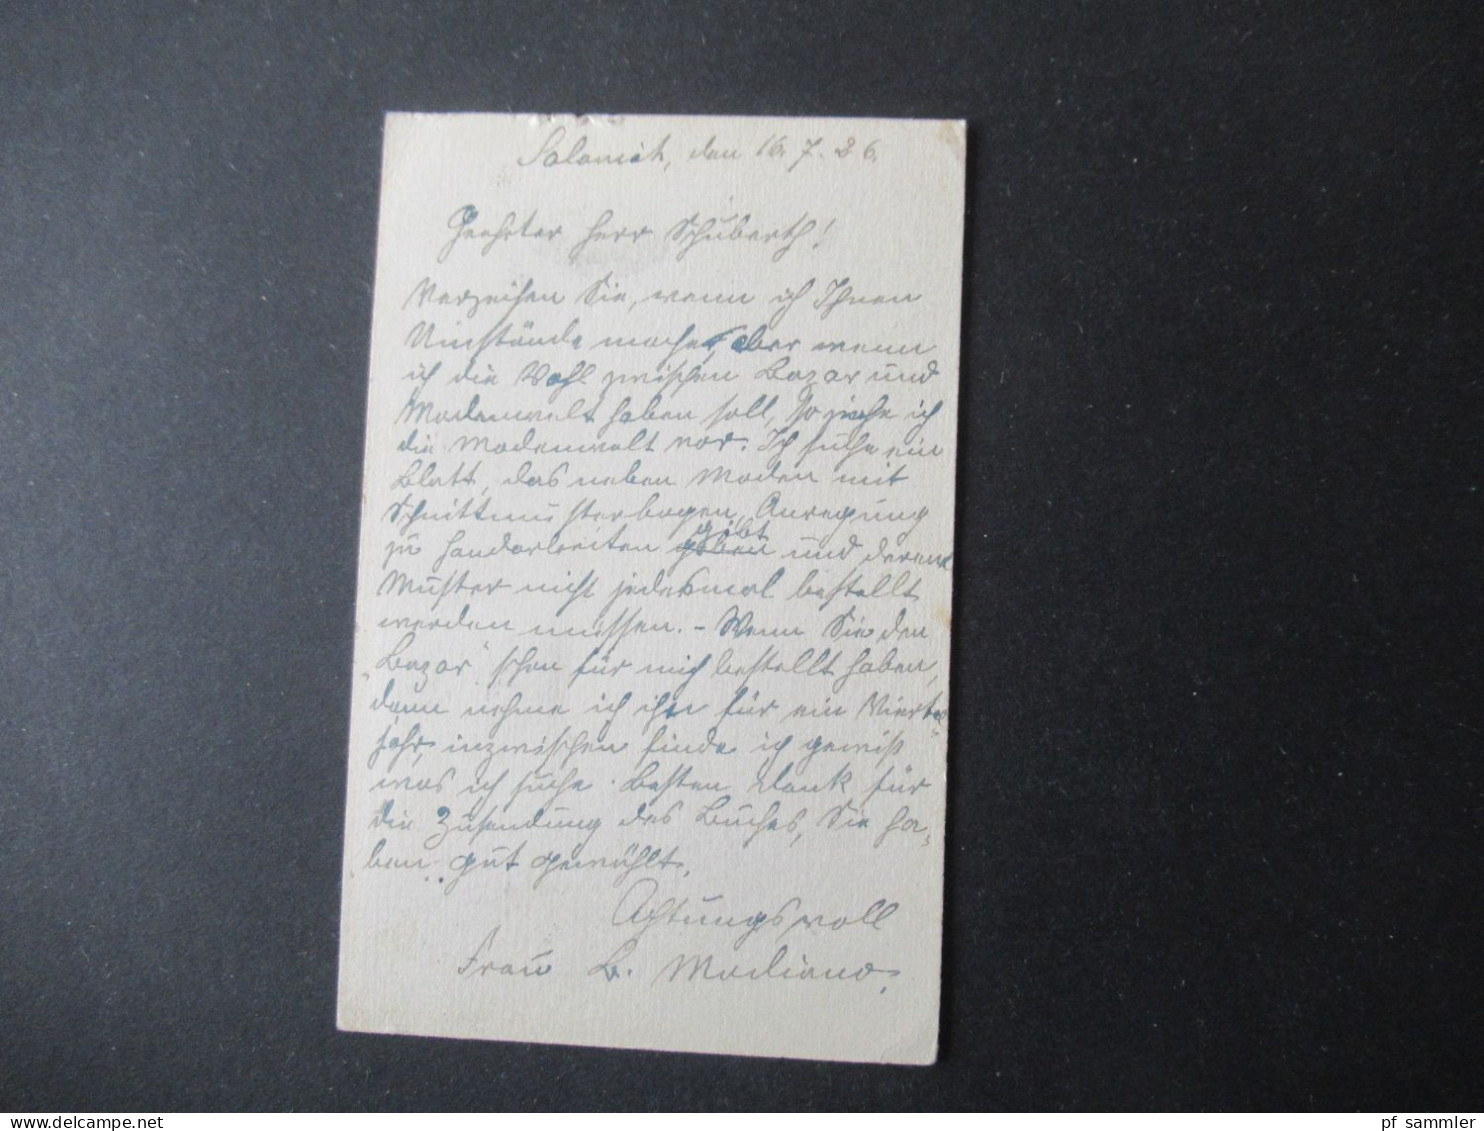 Salonich, den 16. 7. 26.
Geehrter Herr Schuberth!
Verzeihen Sie, wenn ich Ihnen
Umstände mache, aber wenn
ich die Wahl zwischen Bazar und
Modenwelt haben soll, so ziehe ich
die Modenwelt vor. Ich suche ein
Blatt, das neben Moden mit
Schnittmusterbogen, Anregung
zu Handarbeiten gibt und deren
Muster nicht jedesmal bestellt
werden müssen. - Wenn Sie den
„Bazar" schon für mich bestellt haben,
dann nehme ich ihn für ein Viertel-
jahr, inzwischen finde ich gewiß
was ich suche. Besten Dank für
die Zusendung des Buches, Sie ha-
ben gut gewählt.
Achtungsvoll
Frau B. Modiano.
www.delcampe.net
pf sammler